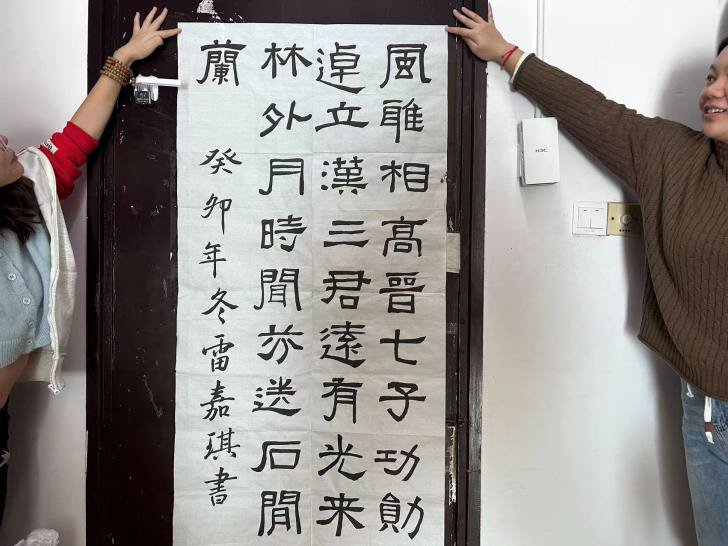 風雅相高晉七子功勛
逴立漢三君遠有光来
林外月時聞亦送石閒
蘭
癸卯年冬雷嘉琪書
H3C